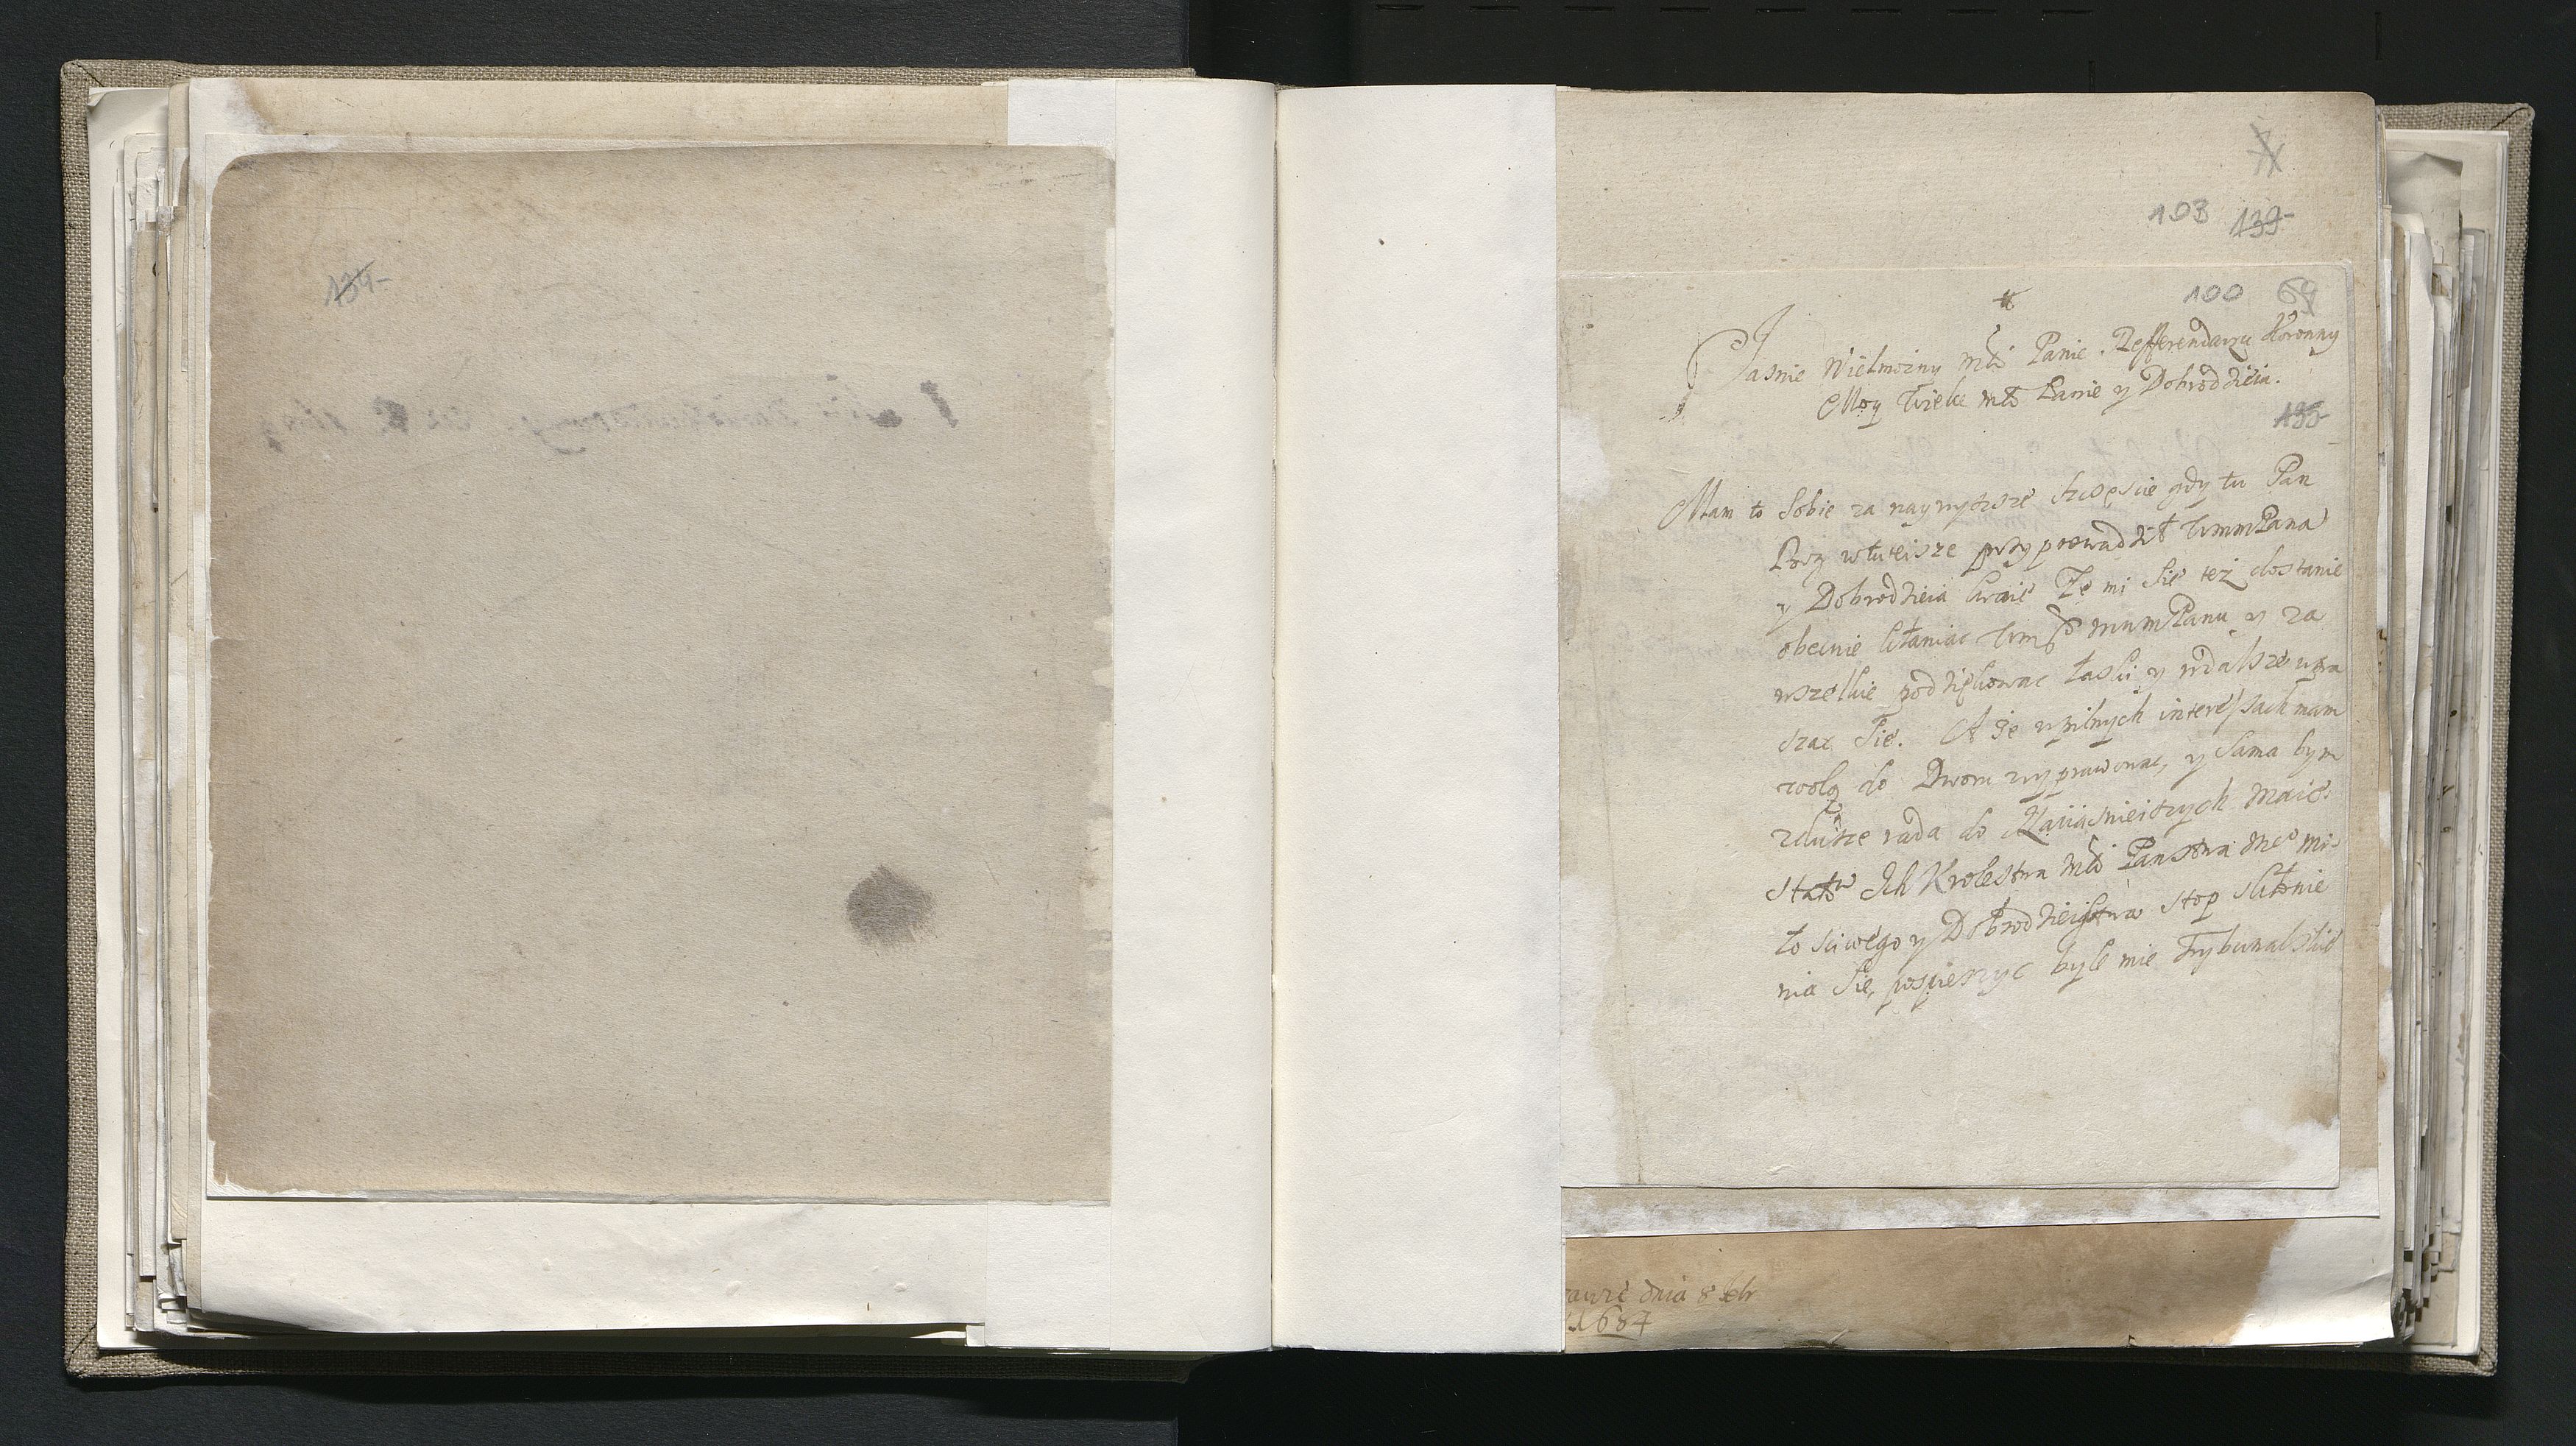 134
103 139
100 69
Jasnie Wielmozny Mći Panie Refferendarzu Koronny
Moy Wielce Mći Panie y Dobrodzieiu.
135
Mam to Sobie za naywyszsze szczęscie gdy tu Pan
Bog wtuteisze przyprowadził WmmPana
y Dobrodzieia kraie Ze mi się też dostanie
obecnie kłaniac Wm mmPanu y za
wszelkie podziękowac łaski y wdalsze upra
szac Się. A że wpilnych interessach mam
wolą do Dworu wyprawowac, y Sama bym
zdusze rada do Naiiasnieiszych Maie
statow Ich Krolestwa Mći Panstwa mego mi
łosciwego y Dobrodzieistwa stop skłonie
nia Się, pospieszyc byle mie Trybunalskie
dnia 8 febr
1687